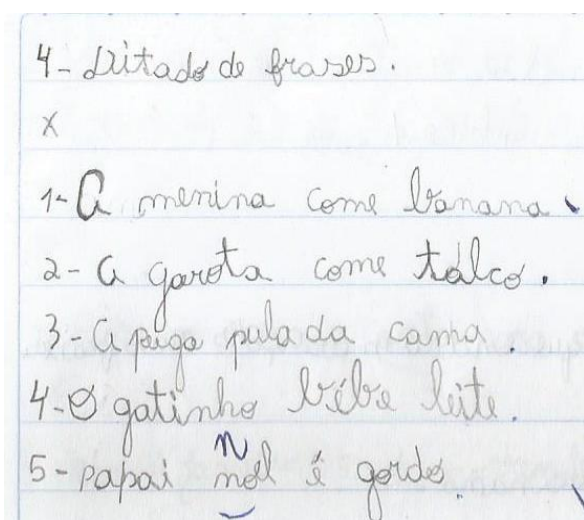 4- Ditado de frases.
X
1- A menina come banana
2- A garota come talco.
3- A puga pula da cama.
4- O gatinho bebe leite.
n
5- papai noel é gordo.